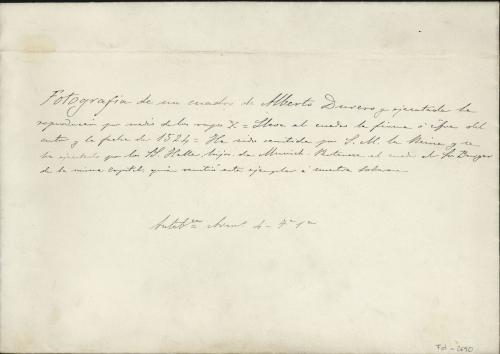 Fotografía de un cuadro de Alberto Durero y ejecutada la
reproducción por medio de los rayos X = Lleva el cuadro la firma ó cifra del
autor y la fecha de 1524 = Ha sido remitida por S. M. la Reina y se
ha ejecutado por los Hallen, hijos, de Munich. Pertenece el cuadro al Sr
de la misma capital quien remitió este ejemplar á nuestra Soberana
4 -
Fot - 2690